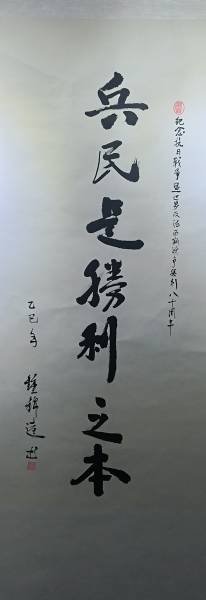 紀念抗日戰爭暨世界反法西斯戰爭勝利八十周年
兵民是勝利之本
乙巳年